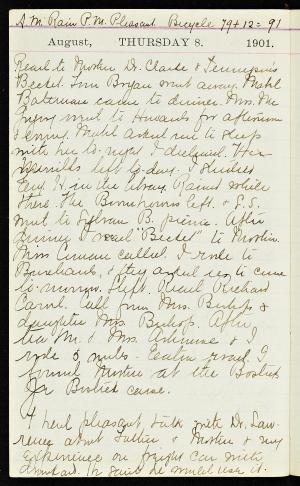 A.M. Rain P.M. Pleasant. Bicycle 79 + 12 = 91
August, THURSDAY 8. 1901.
Read to Mother Dr. Clarke & Tennyson's
Becket. Inn Bryan went away. Mabel
Bateman came to dinner. Mrs. Mc
went to Howards for afternoon
& evening. Mabel asked me to sleep
with her to-night. I declined. The
Merrills left to-day. I studied
Eng. H. in the library. Rained while
there. The left. & S. S.
went to Sylvan B. picnic. After
dinner I read "Becket" to Mother.
Mrs. called. I rode to
& they asked us to come
to-morrow. I left. Orchard
Card. Call from Mrs. Bishop &
daughter Mrs. Bishop. After
tea Mr. & Mrs. & I
rode 6 miles. road. I
found Mother at the
Jr. came.
I had pleasant talk with Dr. Law-
rence about Luther, & Mother & my
experience on freight car with
drunkard. He said he would use it.